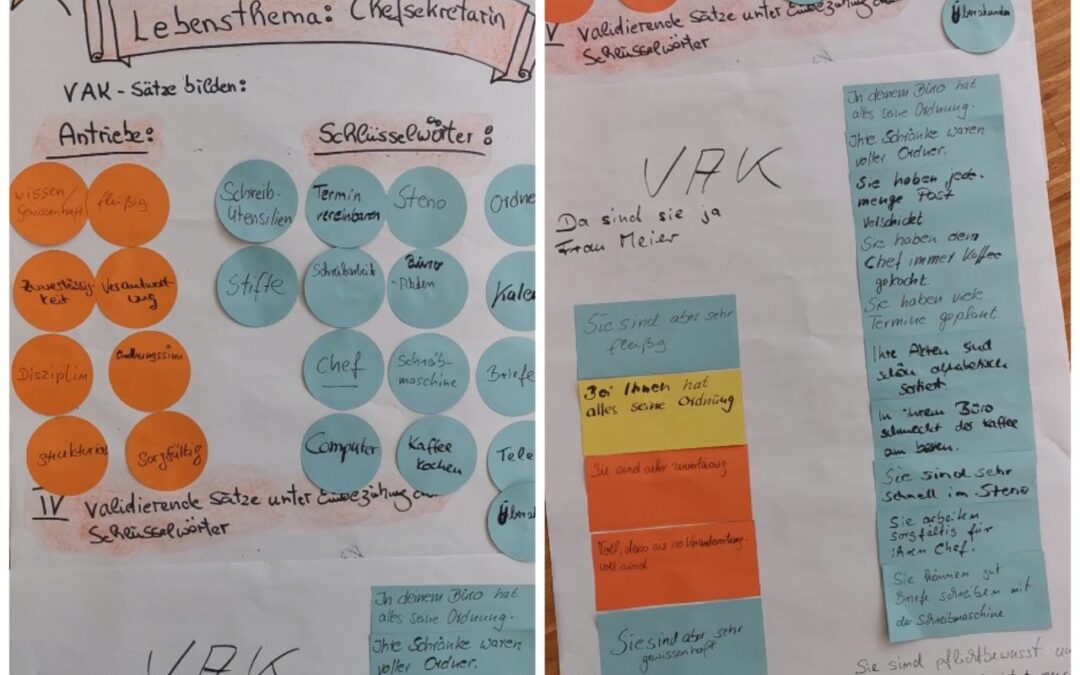 Lebensthema: Chefsekretärin
VAK - Sätze bilden:
Antriebe:
Schlüsselwörter:
wissen/
gewissenhaft
fleißig
Zuverlässig-
keit
Verantwort-
ung
Disziplin
Ordnungssinn
Sorgfältig
Schreib-
Utensilien
Termin
vereinbaren
Steno
Ordne
Stifte
Schreibarbeit
Büro
-Akten
Kalen
Chef
Schreib-
maschine
Briefe
Computer
Kaffee
kochen
Tele
IV Validierende Sätze unter Einbeziehung
Schlüsselwörter
VAK
In deinem Büro hat
alles seine Ordnung.
Ihre Schränke waren
voller Ordner.
V Validierende Sätze unter Einbeziehung
Schlüsselwörter
Überstunden
VAK
Da sind sie ja
Frau Meier
Sie sind aber sehr
fleißig
Bei Ihnen hat
alles seine Ordnung
Sie sind sehr zuverlässig
Toll, dass sie so Verantwortung-
voll sind
Sie sind aber sehr
gewissenhaft
In deinem Büro hat
alles seine Ordnung.
Ihre Schränke waren
voller Ordner.
Sie haben jede-
menge Post
verschickt
Sie haben dem
Chef immer Kaffee
gekocht.
Sie haben viele
Termine geplant.
Ihre Akten sind
schön alphabetisch
sortiert.
In ihrem Büro
schmeckt der Kaffee
am besten.
Sie sind sehr
schnell im Steno
Sie arbeiten
sorgfältig für
ihren Chef.
Sie können gut
Briefe schreiben mit
der Schreibmaschine
Sie sind pflichtbewusst